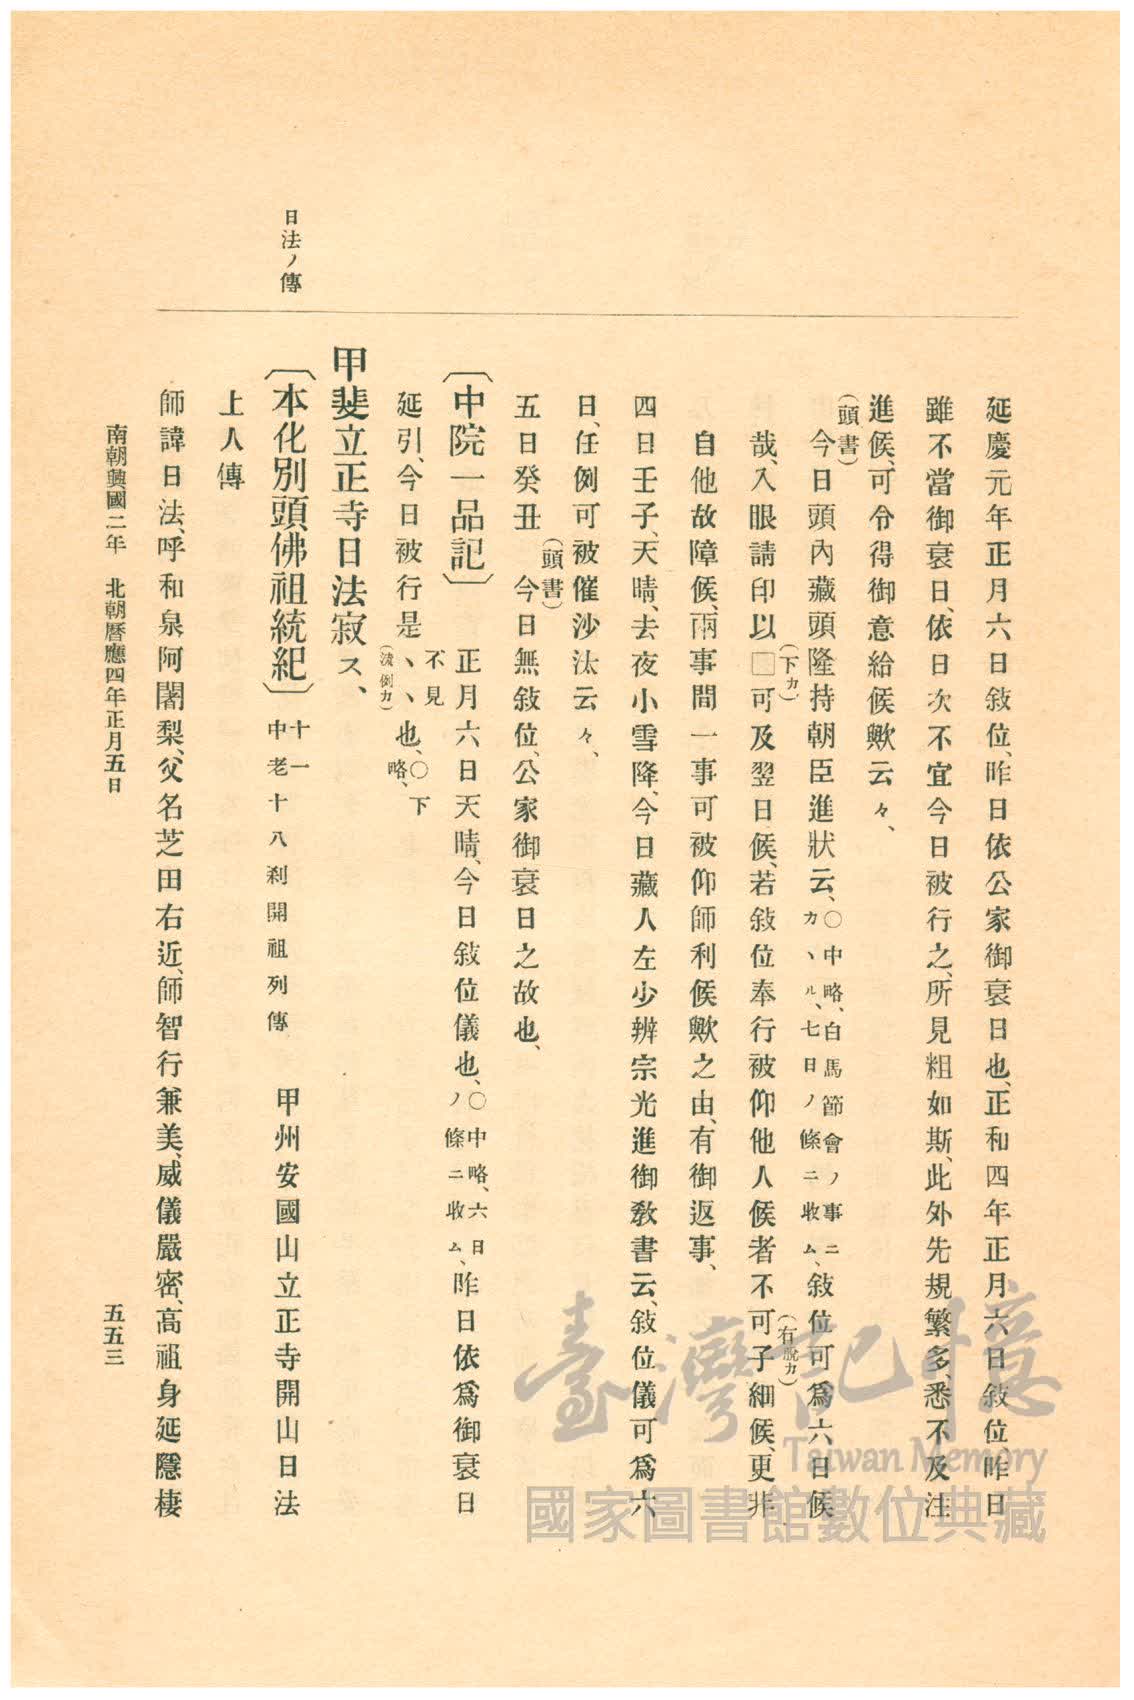 延慶元年正月六日敍位、昨日依公家御衰日也、正和四年正月六日敍位昨日
雖不當御衰日、依日次不宜今日被行之、所見粗如斯、此外先規繁多、悉不及注
進候、可令得御意給候歟云々、
(頭書)
今日頭內藏頭隆持朝臣進狀云、〇中略、白馬節會ノ事ニカヽル、七日ノ條ニ收ム、敍位可爲六日候
哉、入眼請印以□(下カ)可及翌日候、若敍位奉行被仰他人候者不可子細(有脫カ)候、更非
自他故障候、兩事間一事可被仰師利候歟之由、有御返事、
四日壬子、天晴、去夜小雪降、今日藏人左少辨宗光進御敎書云、敍位儀可爲六
日、任例可被催沙汰云々、
五日癸丑 (頭書)今日無敍位、公家御衰日之故也、
〔中院一品記〕 正月六日天晴、今日敍位儀也、〇中略、六日ノ條ニ收ム、昨日依爲御衰日
延引、今日被行是不見ヽヽ也、〇下略、
甲斐立正寺日法寂ス、
日法ノ傳
〔本化別頭佛祖統紀〕 十一 中老十八刹開祖列傳 甲州安國山立正寺開山日法
上人傳
師諱日法、呼和泉阿闍梨、父名芝田右近、師智行兼美、威儀嚴密、高祖身延隱棲
南朝興國二年 北朝曆應四年正月五日
五五三
臺灣記憶
Taiwan Memory
國家圖書館數位典藏